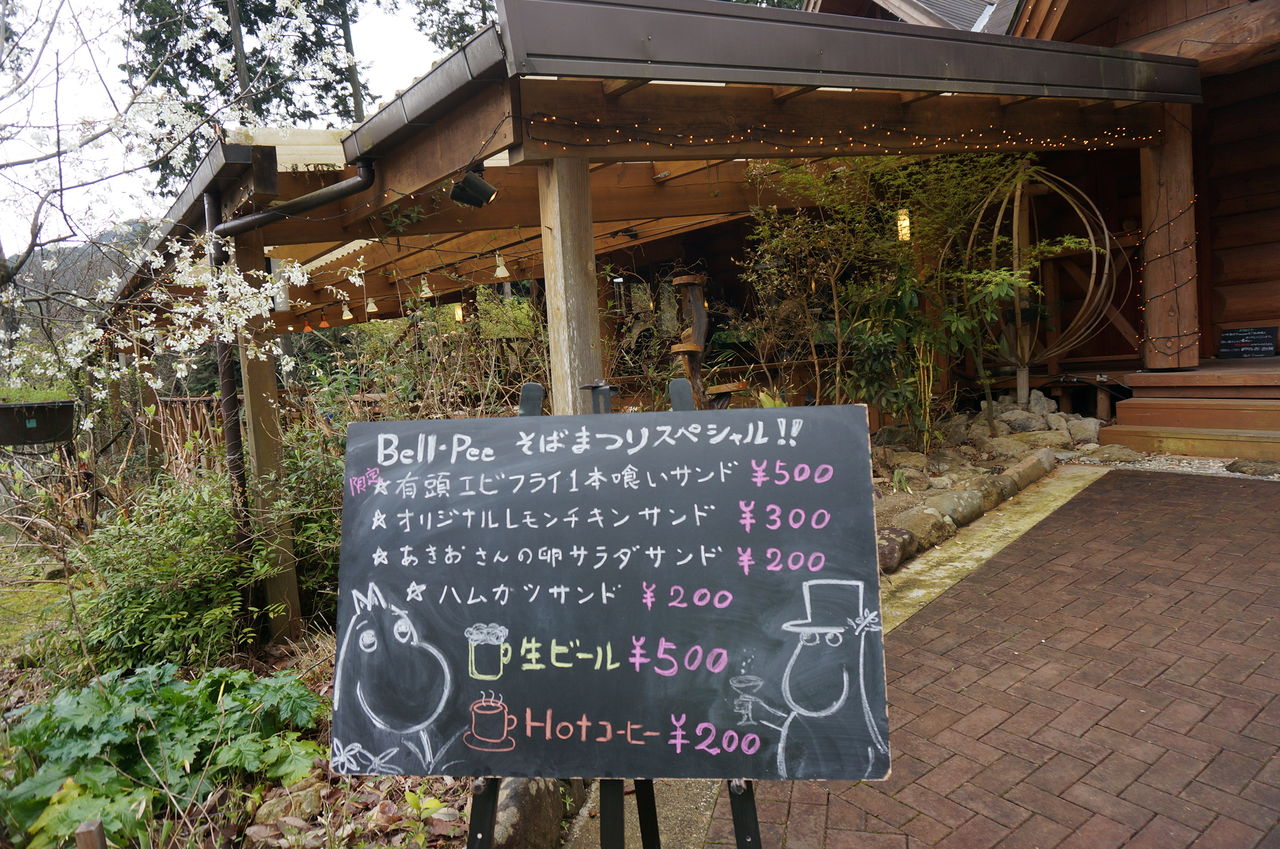 Bell・Pee そばまつりスペシャル!!
限定☆有頭エビフライ1本喰いサンド ¥500
☆オリジナルレモンチキンサンド ¥300
☆あきおさんの卵サラダサンド ¥200
☆ハムカツサンド ¥200
生ビール ¥500
Hotコーヒー ¥200